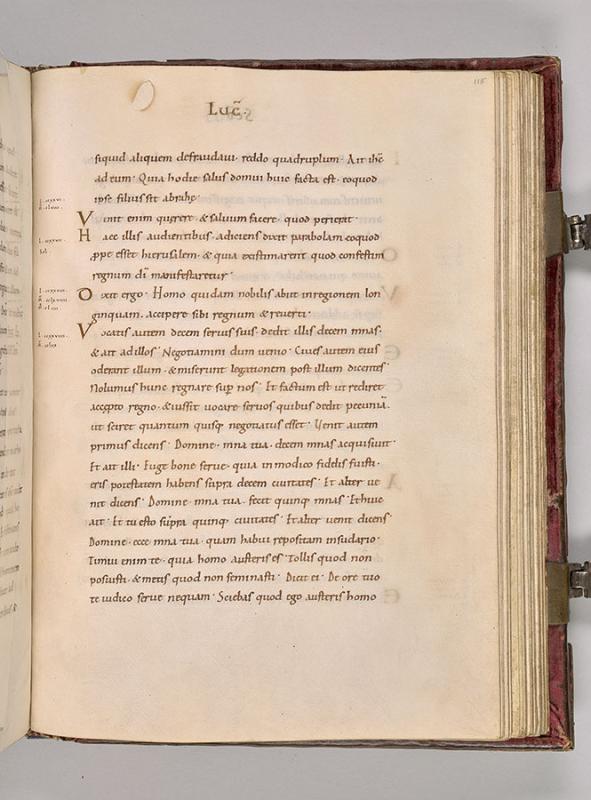 115
Luc̄.
siquid aliquem defraudaui. reddo quadruplum. Ait ihc̄
ad eum. Quia hodie salus domui huic facta est. eoquod
ipse filius sit abrahę.
Venit enim querere. & saluum facere. quod perierat.
Haec illis audientibus. adiciens dixit parabolam eoquod
ꝓpe esset hierusalem. & quia existimarent quod confestim
regnum dī manifestaretur.
Dixit ergo. Homo quidam nobilis abiit inregionem lon
ginquam. accipere sibi regnum & reuerti.
Vocatis autem decem seruis suis. dedit illis decem mnas.
& ait ad illos. Negotiamini dum uenio. Ciues autem eius
oderant illum. & miserunt legationem post illum dicentes.
Nolumus hunc regnare sup̄ nos. Et factum est ut rediret
accepto regno. & iussit uocare seruos quibus dedit pecuniā.
ut sciret quantum quisq; negotiatus esset. Venit autem
primus dicens. Domine. mna tua. decem mnas acquisiuit.
Et ait illi. Euge bone serue. quia in modico fidelis fuisti.
eris potestatem habens supra decem ciuitates. Et alter ue
nit dicens. Domine. mna tua. fecit quinq; mnas. Et huic
ait. Et tu esto supra quinq; ciuitates. Et alter uenit dicens.
Domine. ecce mna tua. quam habui repositam insudario.
Timui enim te. quia homo austeris es. Tollis quod non
posuisti. & metis quod non seminasti. Dicit ei. De ore tuo
te iudico serue nequam. Sciebas quod ego austeris homo